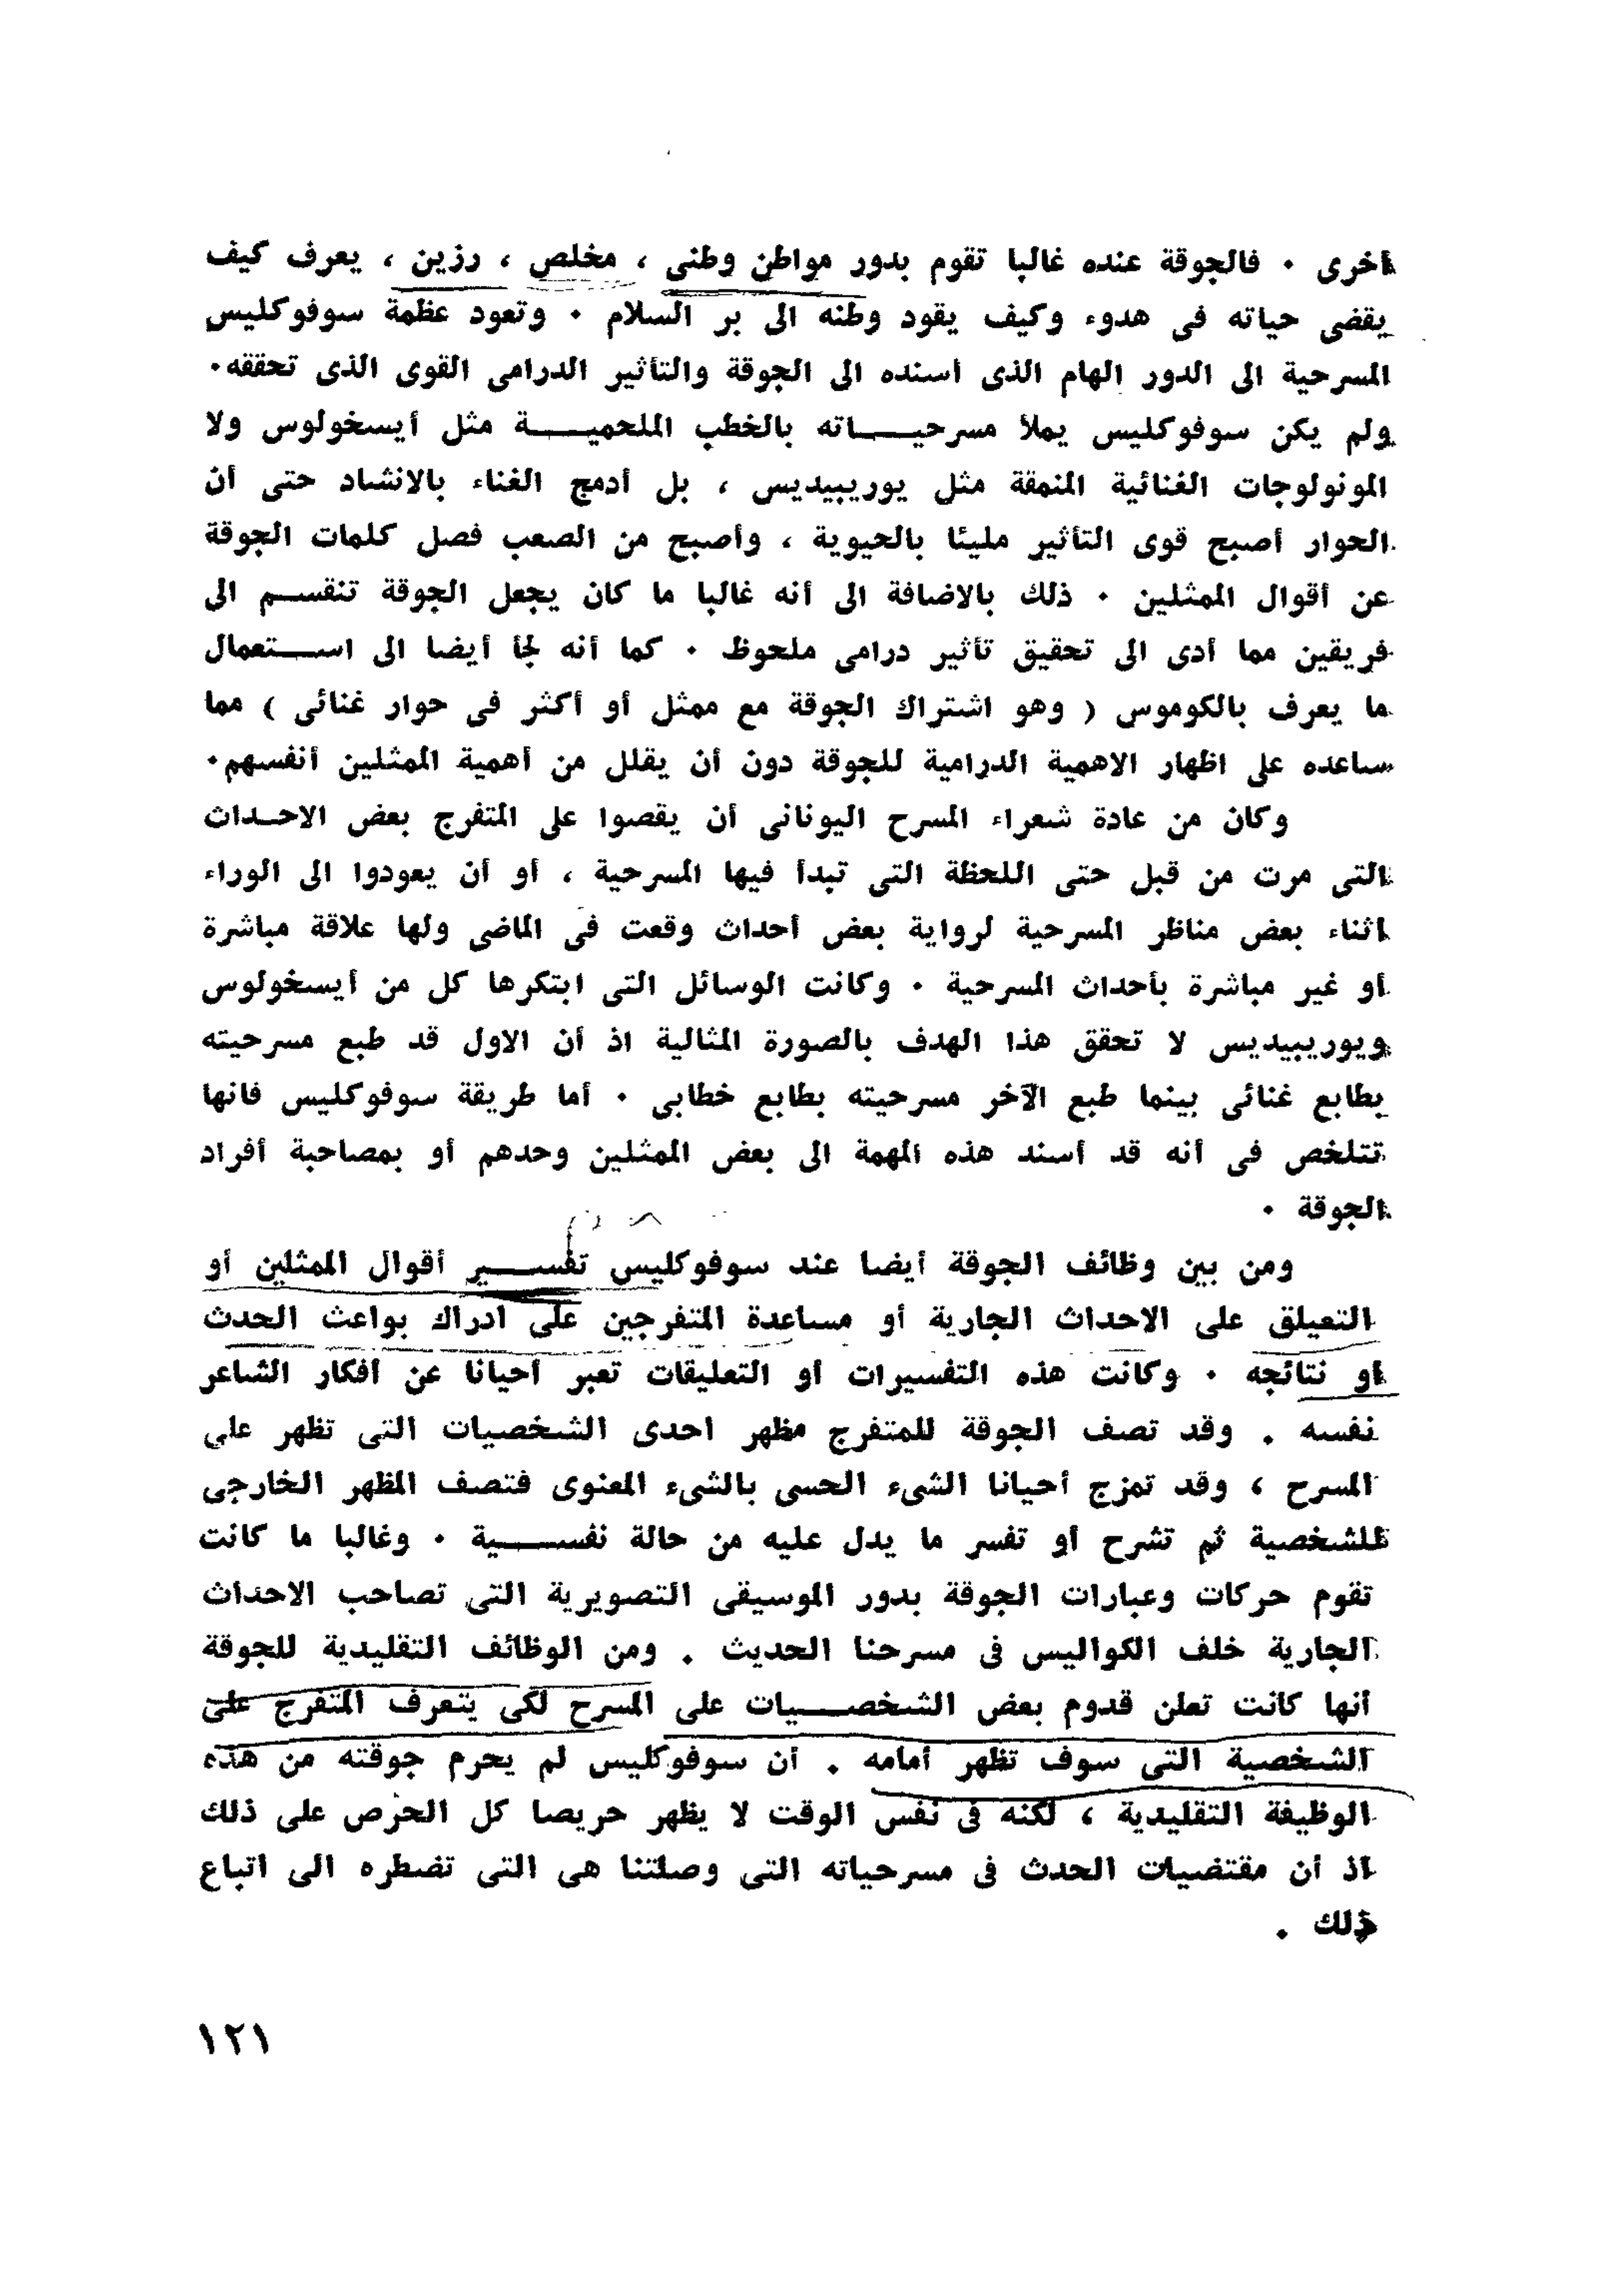 أخرى ٠ فالجوقة عنده غالبا تقوم بدور مواطن وطنى ، مخلص ، رزين ، يعرف كيف
يقضى حياته فى هدوء وكيف يقود وطنه الى بر السلام ٠ وتعود عظمة سوفوكليس
المسرحية الى الدور الهام الذى أسنده الى الجوقة والتأثير الدرامى القوى الذى تحققه٠
ولم يكن سوفوكليس يملأ مسرحيـــاته بالخطب الملحميـــة مثل أيسخولوس ولا
المونولوجات الغنائية المنمقة مثل يوريبيديس ، بل أدمج الغناء بالانشاد حتى أن
الحوار أصبح قوى التأثير مليئا بالحيوية ، وأصبح من الصعب فصل كلمات الجوقة
عن أقوال الممثلين ٠ ذلك بالاضافة الى أنه غالبا ما كان يجعل الجوقة تنقســم الى
فريقين مما أدى الى تحقيق تأثير درامى ملحوظ ٠ كما أنه لجأ أيضا الى اســـتعمال
ما يعرف بالكوموس ( وهو اشتراك الجوقة مع ممثل أو أكثر فى حوار غنائى ) مما
ساعده على اظهار الاهمية الدرامية للجوقة دون أن يقلل من أهمية الممثلين أنفسهم٠
وكان من عادة شعراء المسرح اليونانى أن يقصوا على المتفرج بعض الاحـداث
التى مرت من قبل حتى اللحظة التى تبدأ فيها المسرحية ، أو أن يعودوا الى الوراء
أثناء بعض مناظر المسرحية لرواية بعض أحداث وقعت فى الماضى ولها علاقة مباشرة
أو غير مباشرة بأحداث المسرحية ٠ وكانت الوسائل التى ابتكرها كل من أيسخولوس
ويوريبيديس لا تحقق هذا الهدف بالصورة المثالية اذ أن الاول قد طبع مسرحيته
بطابع غنائى بينما طبع الآخر مسرحيته بطابع خطابى ٠ أما طريقة سوفوكليس فانها
تتلخص فى أنه قد أسند هذه المهمة الى بعض الممثلين وحدهم أو بمصاحبة أفراد
الجوقة ٠
ومن بين وظائف الجوقة أيضا عند سوفوكليس تفســـير أقوال الممثلين أو
التعيلق على الاحداث الجارية أو مساعدة المتفرجين على ادراك بواعث الحدث
أو نتائجه ٠ وكانت هذه التفسيرات أو التعليقات تعبر أحيانا عن أفكار الشاعر
نفسه . وقد تصف الجوقة للمتفرج مظهر احدى الشخصيات التى تظهر على
المسرح ، وقد تمزج أحيانا الشىء الحسى بالشىء المعنوى فتصف المظهر الخارجى
للشخصية ثم تشرح أو تفسر ما يدل عليه من حالة نفســـية ٠ وغالبا ما كانت
تقوم حركات وعبارات الجوقة بدور الموسيقى التصويرية التى تصاحب الاحداث
الجارية خلف الكواليس فى مسرحنا الحديث . ومن الوظائف التقليدية للجوقة
أنها كانت تعلن قدوم بعض الشخصـــيات على المسرح لكى يتعرف المتفرج على
الشخصية التى سوف تظهر أمامه . أن سوفوكليس لم يحرم جوقته من هذه
الوظيفة التقليدية ، لكنه فى نفس الوقت لا يظهر حريصا كل الحرص على ذلك
اذ أن مقتضيات الحدث فى مسرحياته التى وصلتنا هى التى تضطره الى اتباع
ذلك .
١٢١